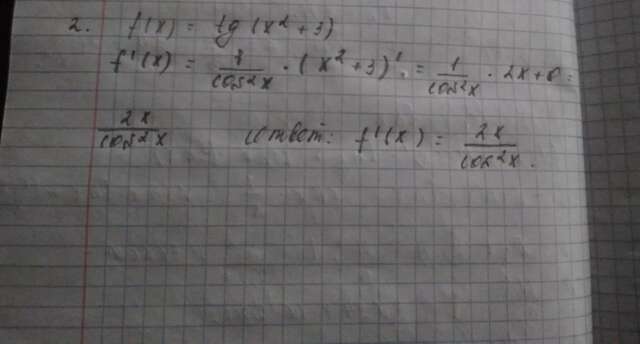 2. f(x) = tg (x² + 3)
f'(x) = 1/cos²x · (x² + 3)' = 1/cos²x · 2x + 0 =
2x/cos²x Ответ: f'(x) = 2x/cos²x.